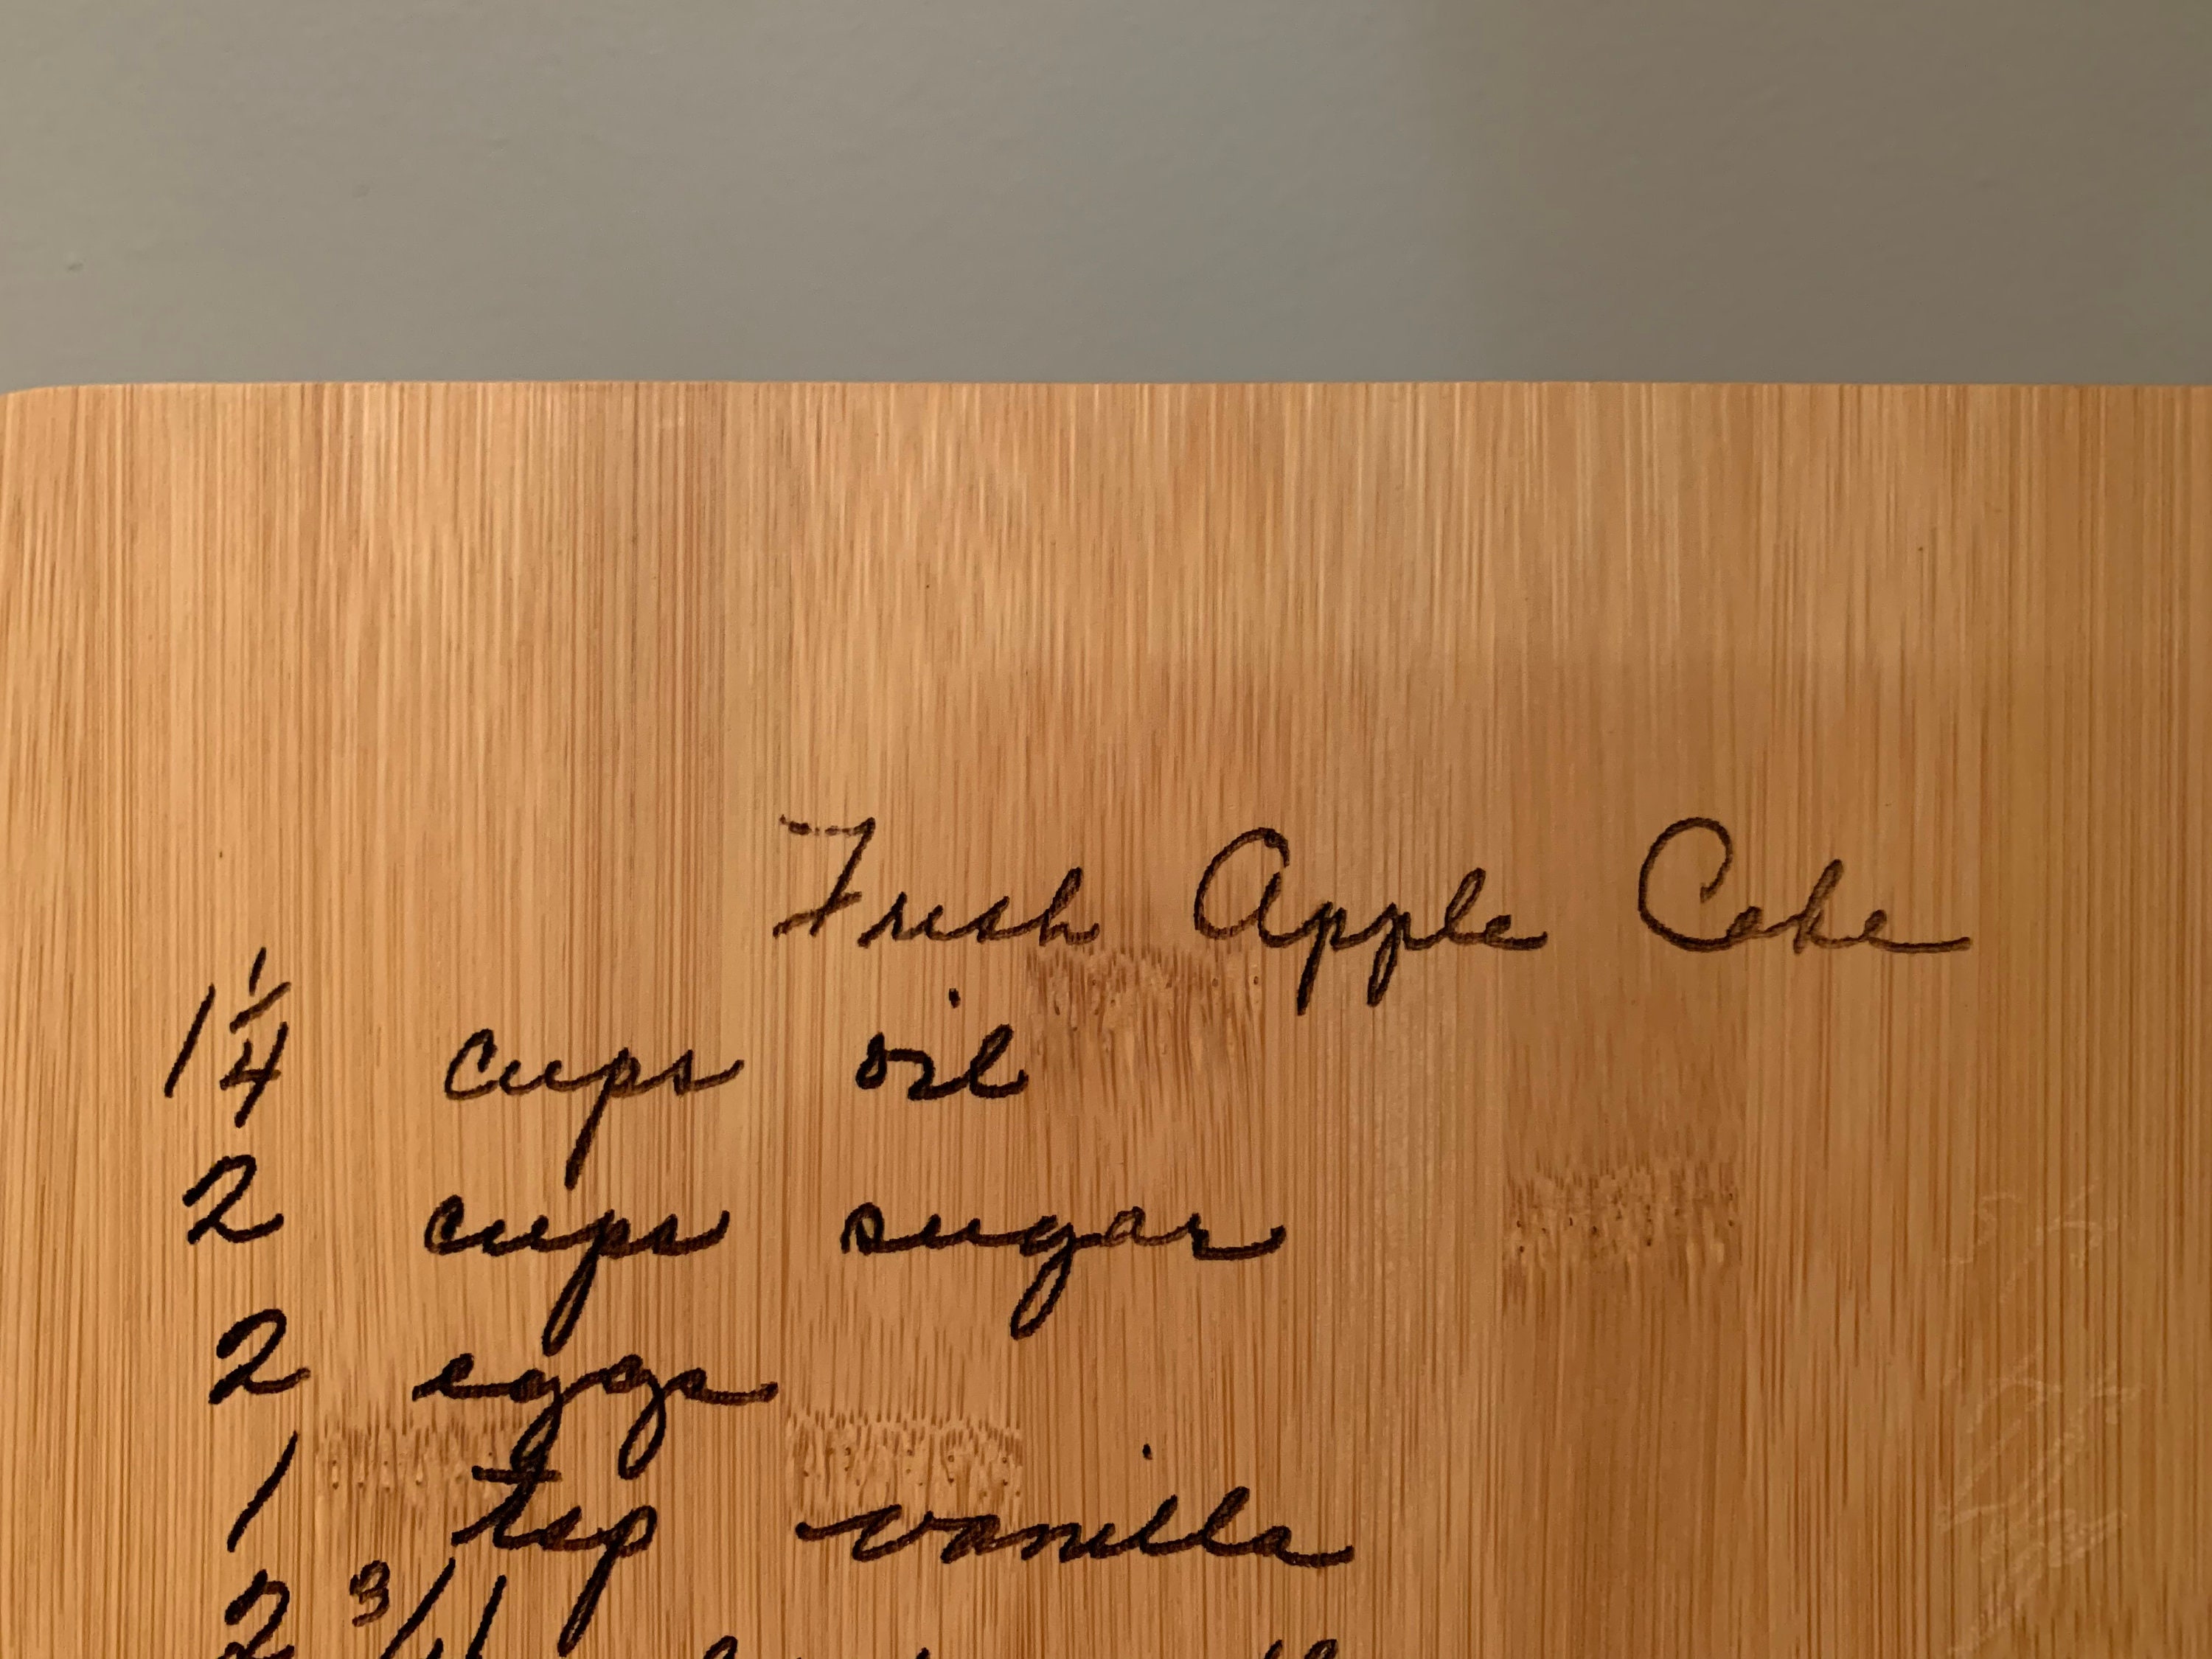 Fresh Apple Cake
1 1/4 cups oil
2 cups sugar
2 eggs
1 tsp vanilla
2 3/4